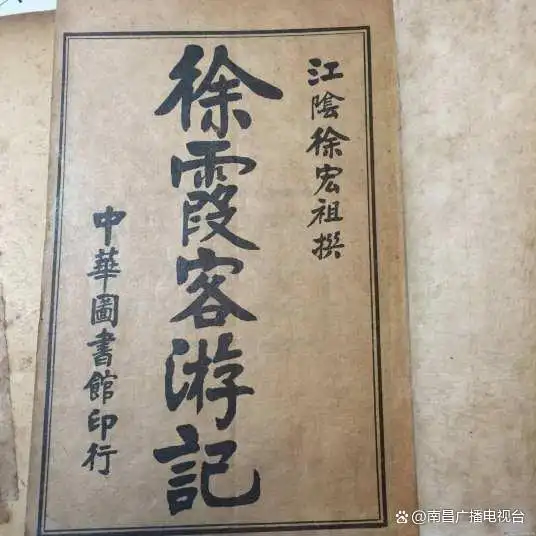 江陰徐宏祖撰
徐霞客游記
中華圖書館印行
@南昌广播电视台